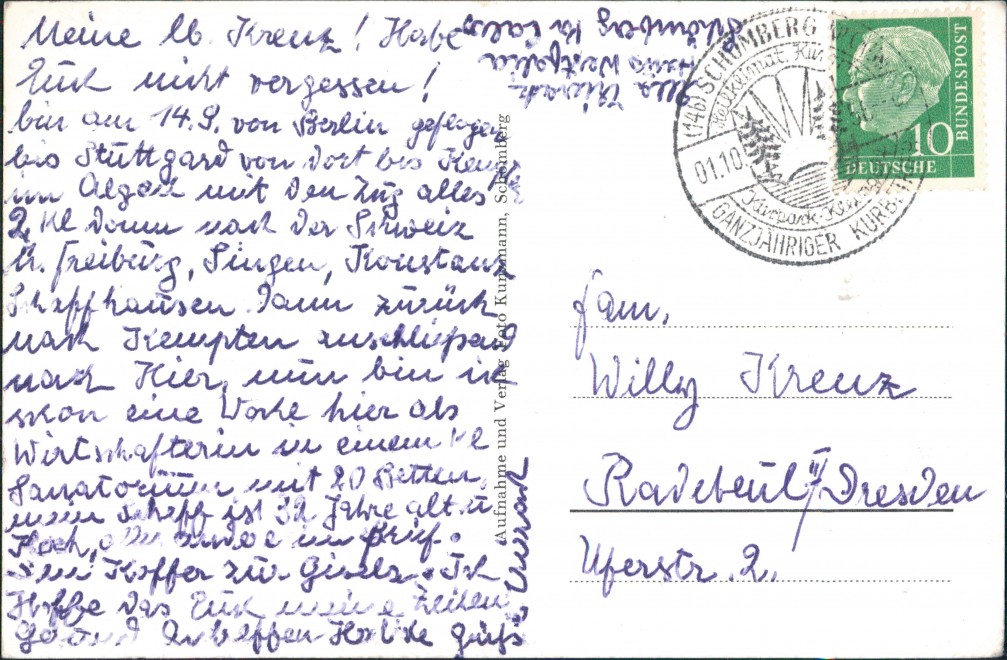 Meine lb. Krenz! Habe
Euch nicht vergessen!
bin am 14.9. von Berlin geflogen
bis Stuttgard von dort bis Kempt
im Algäu mit den Zug alles
2, Kl dann nach der Schweiz
ü. Freiburg, Singen, Konstanz
Schaffhausen. Dann zurück
nach Kempten anschließend
nach Hier, nun bin ich
schon eine Woche hier als
Wirtschafterin in einem kl
Sanatorium mit 20 Betten.
mein Scheff ist 32 Jahre alt u.
Koch, alles andere im Brief.
Koffer zur Gisela. Ich
Hoffe das Euch meine Zeilen
Gesund Antreffen Herzliche Grüße
Heus Westfalia
Schömberg Kr. Calw
Aufnahme und Verlag Foto Kunzmann, Schömberg
(14b) SCHÖMBERG
Heilklimat. Kur
01.10
Kurpark
GANZJÄHRIGER KURB
DEUTSCHE
BUNDESPOST
10
Fam.
Willy Krenz
Radebeul II/Dresden
Uferstr. 2.